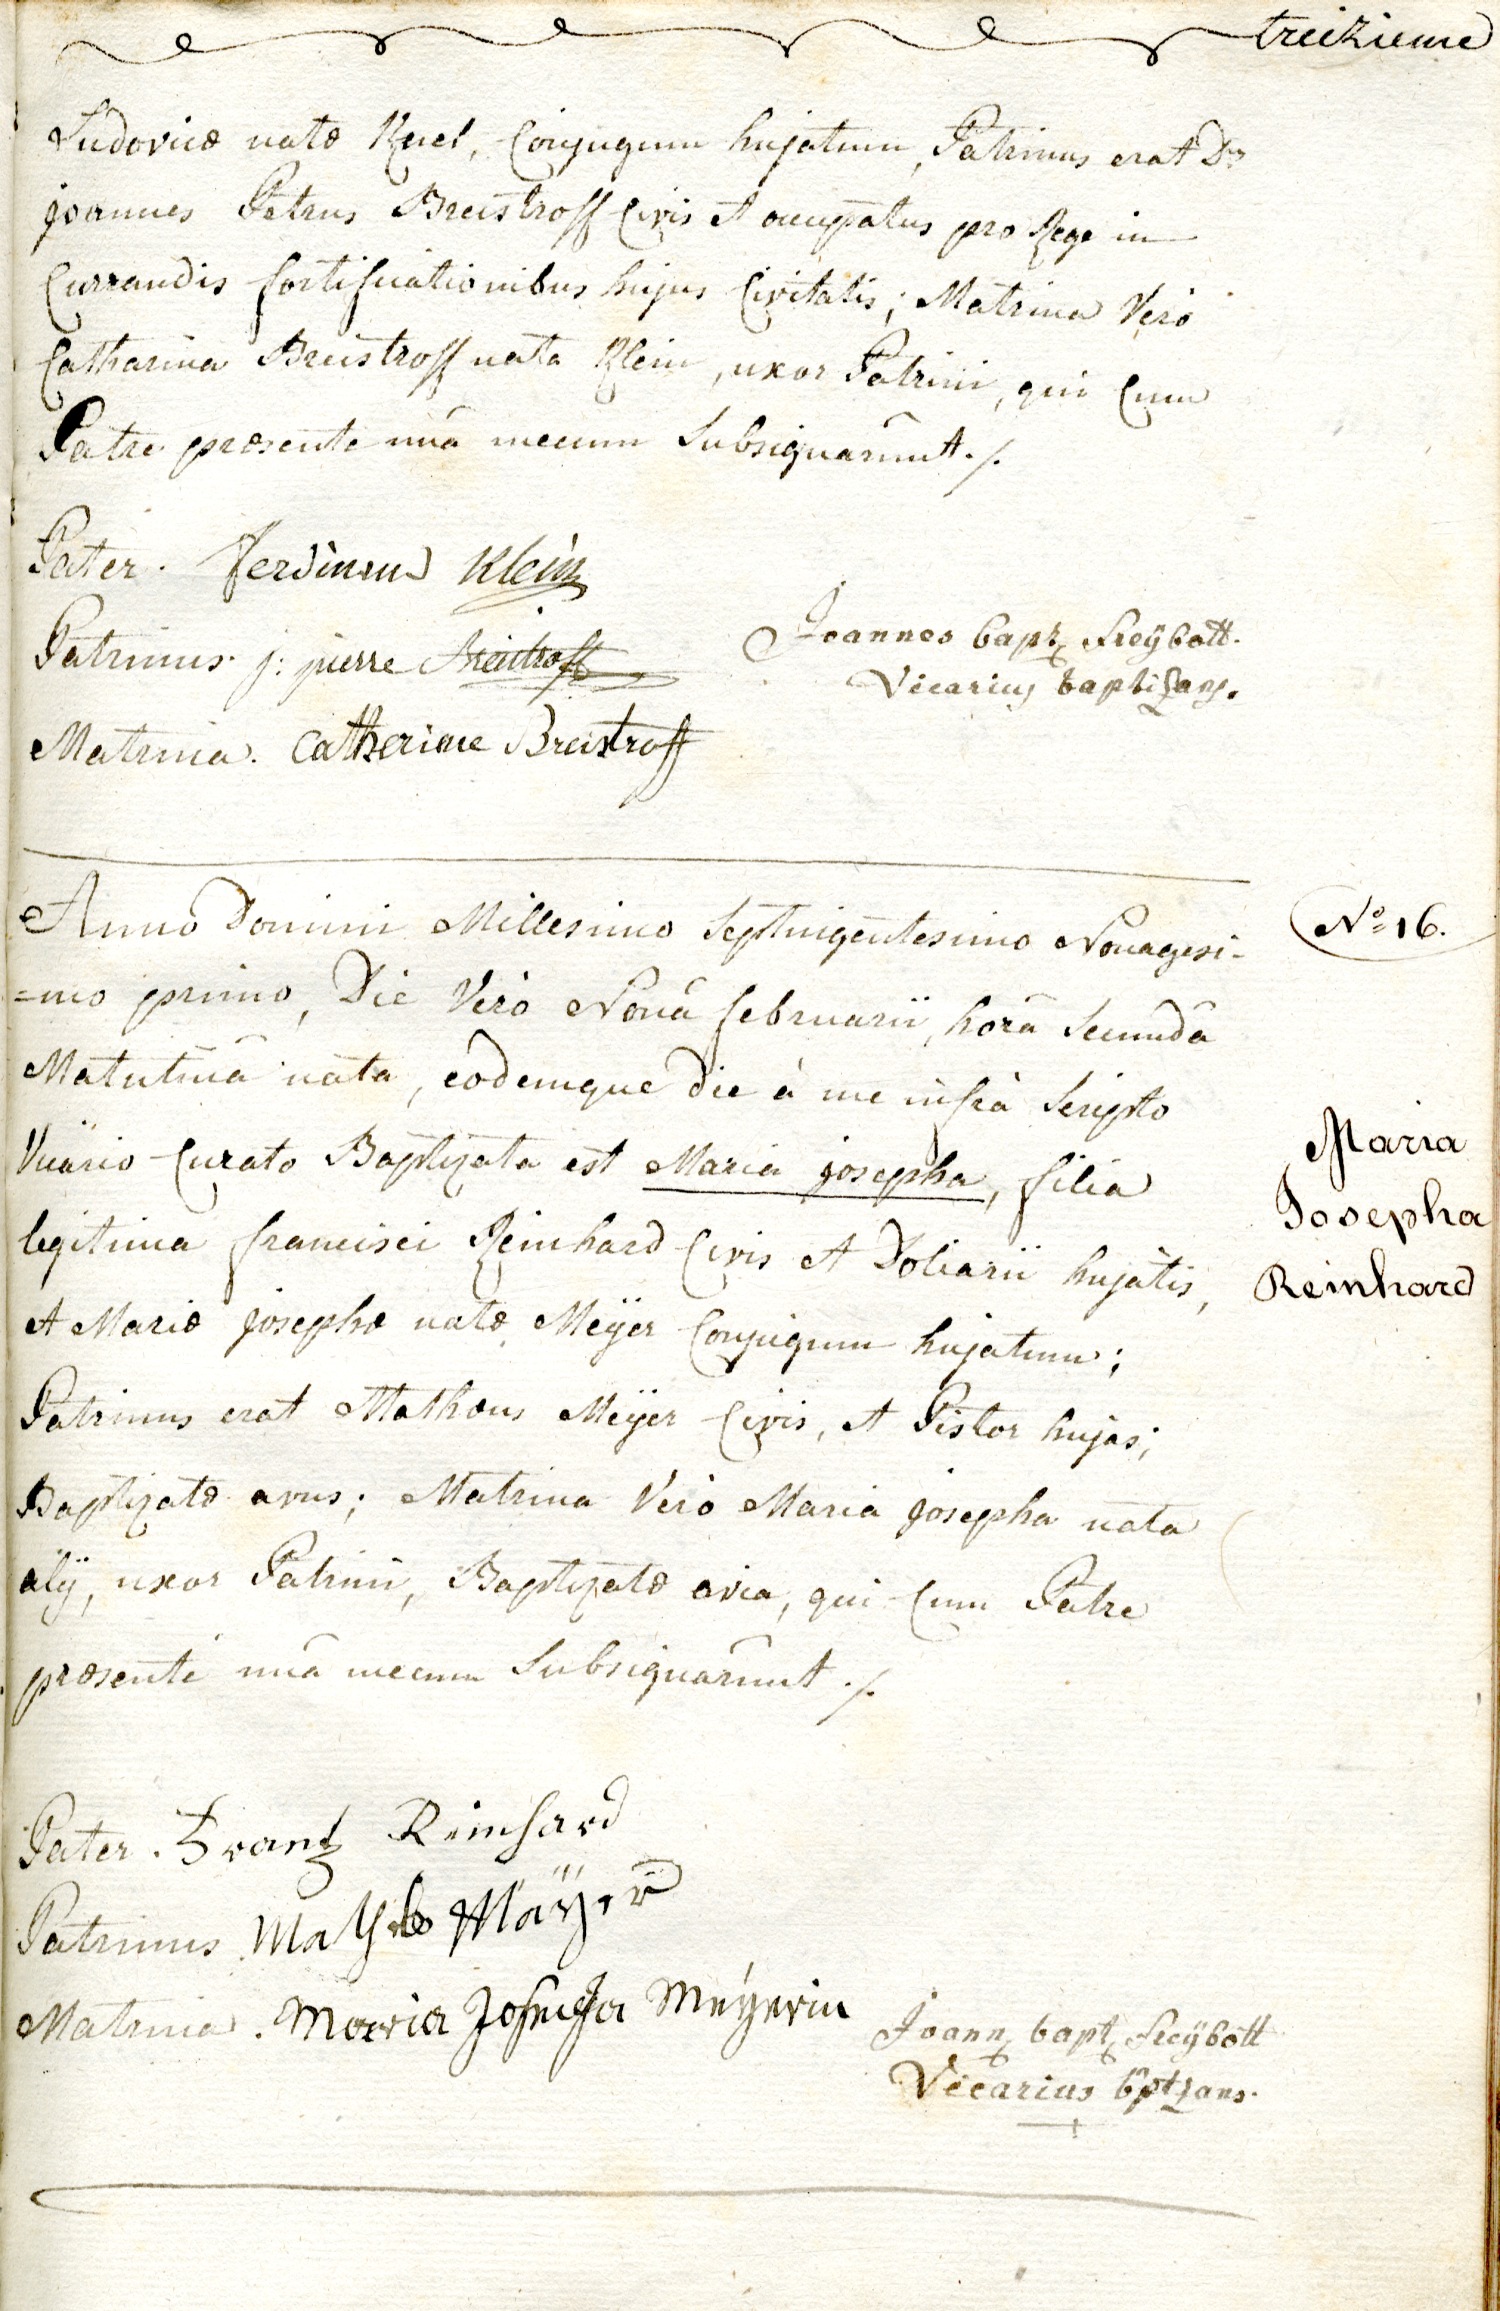 treizieme
Ludovicæ natæ Knel, Conjugum hujatum, Patrinus erat Dnus
joannes Petrus Breistroff Civis et occupatus pro Rege in
Currandis fortificationibus hujus Civitatis; Matrina Verò
Catharina Breistroff nata Klein, uxor Patrini, qui Cum
Patre præsente unâ mecum Subsignarunt ./.
Pater. Ferdinand Klein
Patrinus. j: pierre Breistroff
Joannes bapt. Freÿbott.
Vicarius baptizans.
Matrina. Catherine Breistroff
Anno Domini Millesimo Septuigentesimo Nonagesi-
N° 16.
=mo primo, Die Verò Nonâ februarii, horâ Secundâ
Matutinâ nata, eodemque die à me infrà Scripto
Maria
Vicario Curato Baptizata est Maria josepha, filia
Josepha
legitima francisci Reinhard Civis et Doliarii hujatis,
Reinhard
et Mariæ josephæ natæ Meÿer Conjugum hujatum;
Patrinus erat Mathæus Meÿer Civis, et Pistor hujas;
Baptizatæ avus; Matrina Verò Maria josepha nata
älÿ, uxor Patrini, Baptizatæ avia, qui Cum Patre
præsente unâ mecum Subsignarunt ./.
Pater. Frantz Reinhard
Patrinus Maÿer
Matrina. Maria Josepha Meÿerin
Joann. bapt. Freÿbott
Vicarius bptzans.